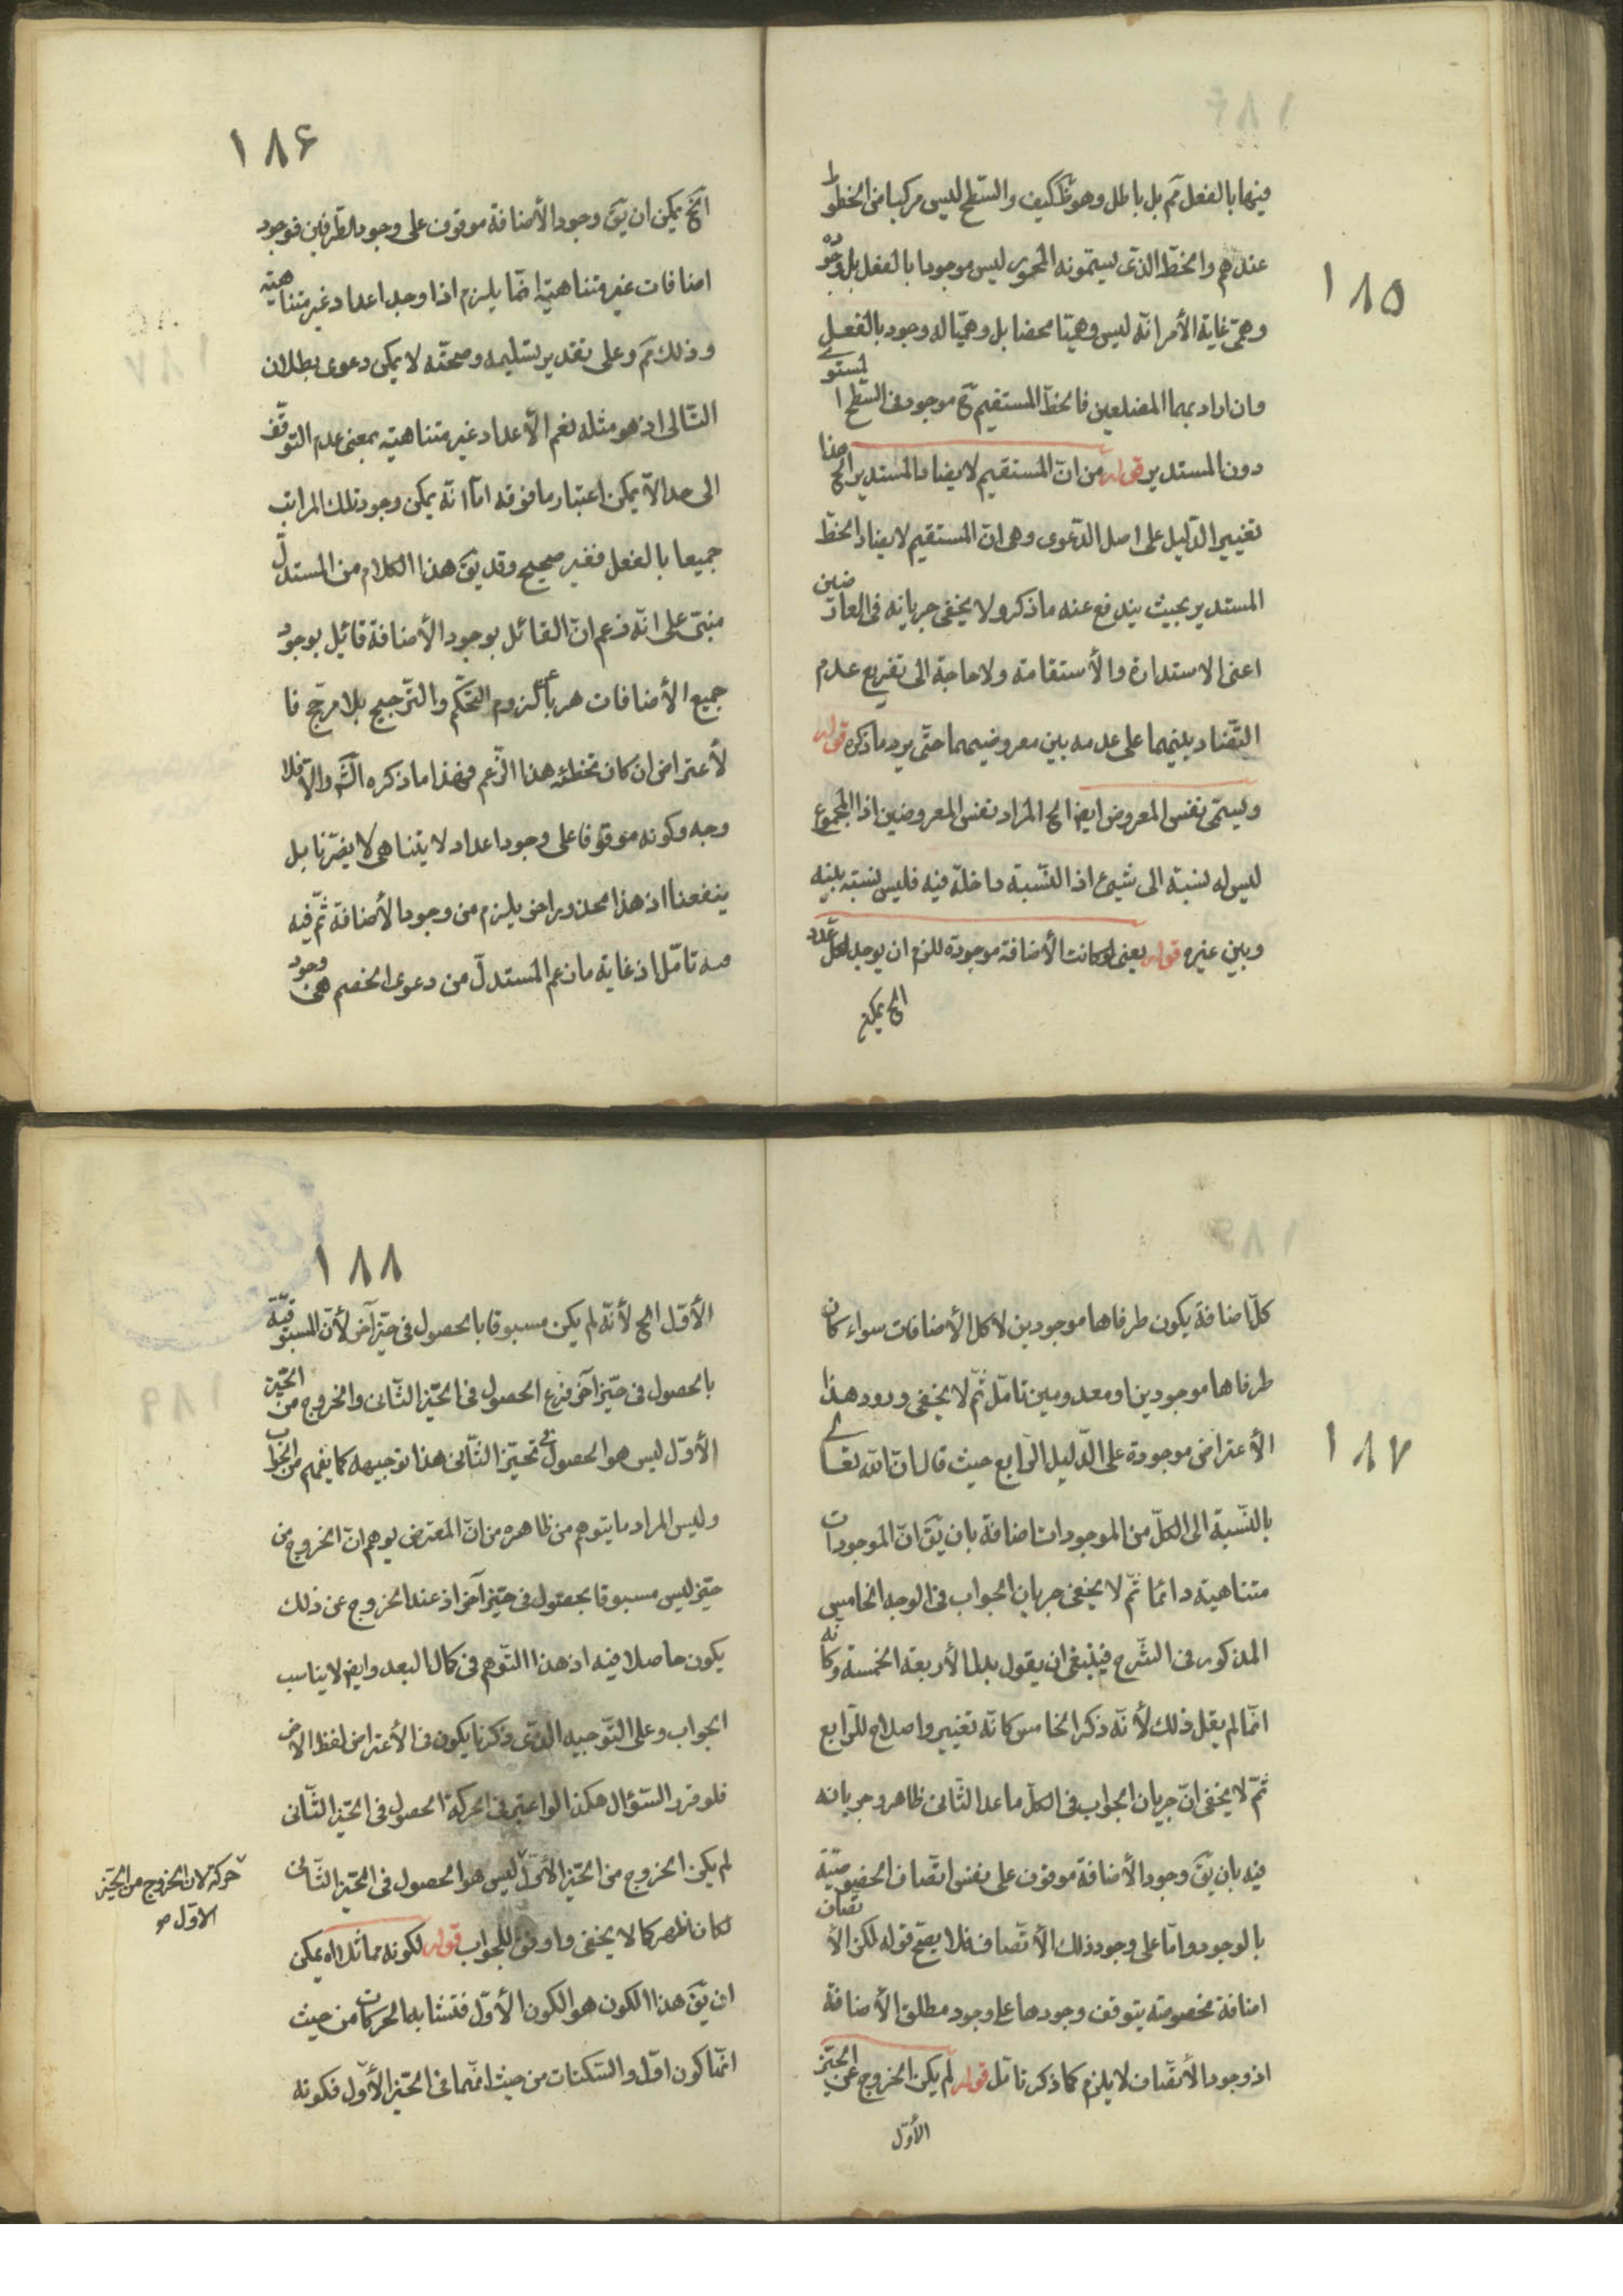 ١٨٥
فيها بالفعل مم بل باطل وهو ظ كيف والسّطح ليس مركبا من الخطوط
عندهم والخطّ الذى يسمّونه المحور ليس موجودا بالفعل بل وجوده
وهمىّ غاية الأمر انّه ليس وهميّا محضا بل وهميّا له وجود بالفعل
وان اراد بهما المضلعين فالخطّ المستقيم ح موجود فى السّطح المستوى
دون المستدير قوله من انّ المستقيم لا يضاد المستدير الخ هذا
تغيير الدّليل على اصل الدّعوى وهى انّ المستقيم لا يضاد الخطّ
المستدير بحيث يندفع عنه ما ذكر ولا يخفى جريانه فى العارضين
اعنى الاستدارة والأستقامة ولا حاجة الى تفريع عدم
التّضاد بينهما على عدمه بين معروضيهما حتّى يرد ما ذكره قوله
ويسمّى نفس المعروض ايضا الخ المراد نفس المعروضين اذا المجموع
ليس له نسبة الى شىء اذ النّسبة داخلة فيه فليس نسبته بينه
وبين غيره قوله يعنى لو كانت الأضافة موجودة للزم ان يوجد لكل عدد
الخ يمكن
١٨۶
الخ يمكن ان يق وجود الأضافة موقوف على وجود الطّرفين فوجود
اضافات غير متناهية انّما يلزم اذا وجد اعداد غير متناهية
وذلك مم وعلى تقدير تسليمه وصحّته لا يمكن دعوى بطلان
التّالى اذ هو مثله نعم الأعداد غير متناهية بمعنى عدم التوقّف
الى حد لا يمكن اعتبار ما فوقه امّا انّه يمكن وجود تلك المراتب
جميعا بالفعل فغير صحيح وقد يق هذا الكلام من المستدلّ
مبنىّ على انّه زعم انّ القائل بوجود الأضافة قائل بوجود
جميع الأضافات هربا عن لزوم التحكّم والترجيح بلا مرجّح فا
لأعتراض ان كان تخطئة هذا الزّعم فهذا ما ذكره الش والّا فلا
وجه وكونه موقوفا على وجود اعداد لا يتناهى لا يضرّنا بل
ينفعنا اذ هذا محذور اخر يلزم من وجود الأضافة ثمّ فيه
مه تامّل اذ غاية ما زعم المستدلّ من دعوى الخصم هى وجود
١٨٧
كلّ اضافة يكون طرفاها موجودين لا كل الأضافات سواء كان
طرفاها موجودين او معدومين تامّل ثمّ لا يخفى ورود هذا
الأعتراض موجودة على الدّليل الرّابع حيث قال انّ الله تعالى
بالنّسبة الى الكلّ من الموجودات اضافة بان يق انّ الموجودات
متناهية دائما ثمّ لا يخفى جريان الجواب فى الوجه الخامس
المذكور فى الشّرح فينبغى ان يقول بدل الأربعة الخمسة وكانّه
انّما لم يقل ذلك لأنّه ذكر الخامس كانّه تغيير واصلاح للرّابع
ثمّ لا يخفى انّ جريان الجواب فى الكلّ ما عدا الثّانى ظاهر وجريانه
فيه بان يق وجود الأضافة موقوف على نفس اتّصاف الحقيقيّة
بالوجود وامّا على وجود ذلك الأتّصاف فلا يصحّ قوله لكن الأتّصاف
اضافة مخصوصة يتوقف وجودها على وجود مطلق الأضافة
اذ وجود الأتّصاف لا يلزم كما ذكرنا تمّل قوله لم يكن الخروج عن الحيّز
الأوّل
١٨٨
الأوّل الخ لأنّه لم يكن مسبوقا بالحصول فى حيّز آخر لأنّ المسبوقيّة
بالحصول فى حيّز آخر فرع الحصول فى الحيّز الثّانى والخروج من الحيّز
الأوّل ليس هو الحصول فى تحيّز الثّانى هذا توجيهه كما يفهم من الجواب
وليس المراد ما يتوهم من ظاهره من انّ المعترض يوهم انّ الخروج من
حيّز ليس مسبوقا بحصول فى حيّز آخر اذ عند الخروج عن ذلك
يكون حاصلا فيه اذ هذا التّوهم فى كمال البعد وايضا لا يناسب
الجواب وعلى التّوجيه الّذى ذكرنا يكون فى الأعتراض لفظ الاض
فلو قرر السّؤال هكذا لو اعتبر فى الحركة الحصول فى الحيّز الثّانى
لم يكن الخروج من الحيّز الأوّل ليس هو الحصول فى الحيّز الثّانى
حركة لان الخروج من الحيّز
الاوّل صح
لكان اظهر كما لا يخفى واوفق للجواب قوله لكونه مماثلا اه يمكن
ان يق هذا الكون هو الكون الأوّل فتشابه الحركات من حيث
انّها كون اوّل والسّكنات من حيث انّهما فى الحيّز الأوّل فكونه